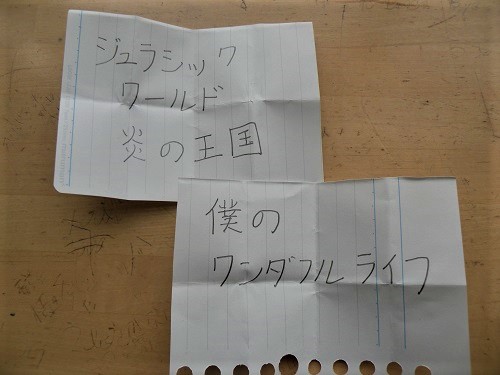 ジュラシック
ワールド
炎の王国
僕の
ワンダフルライフ